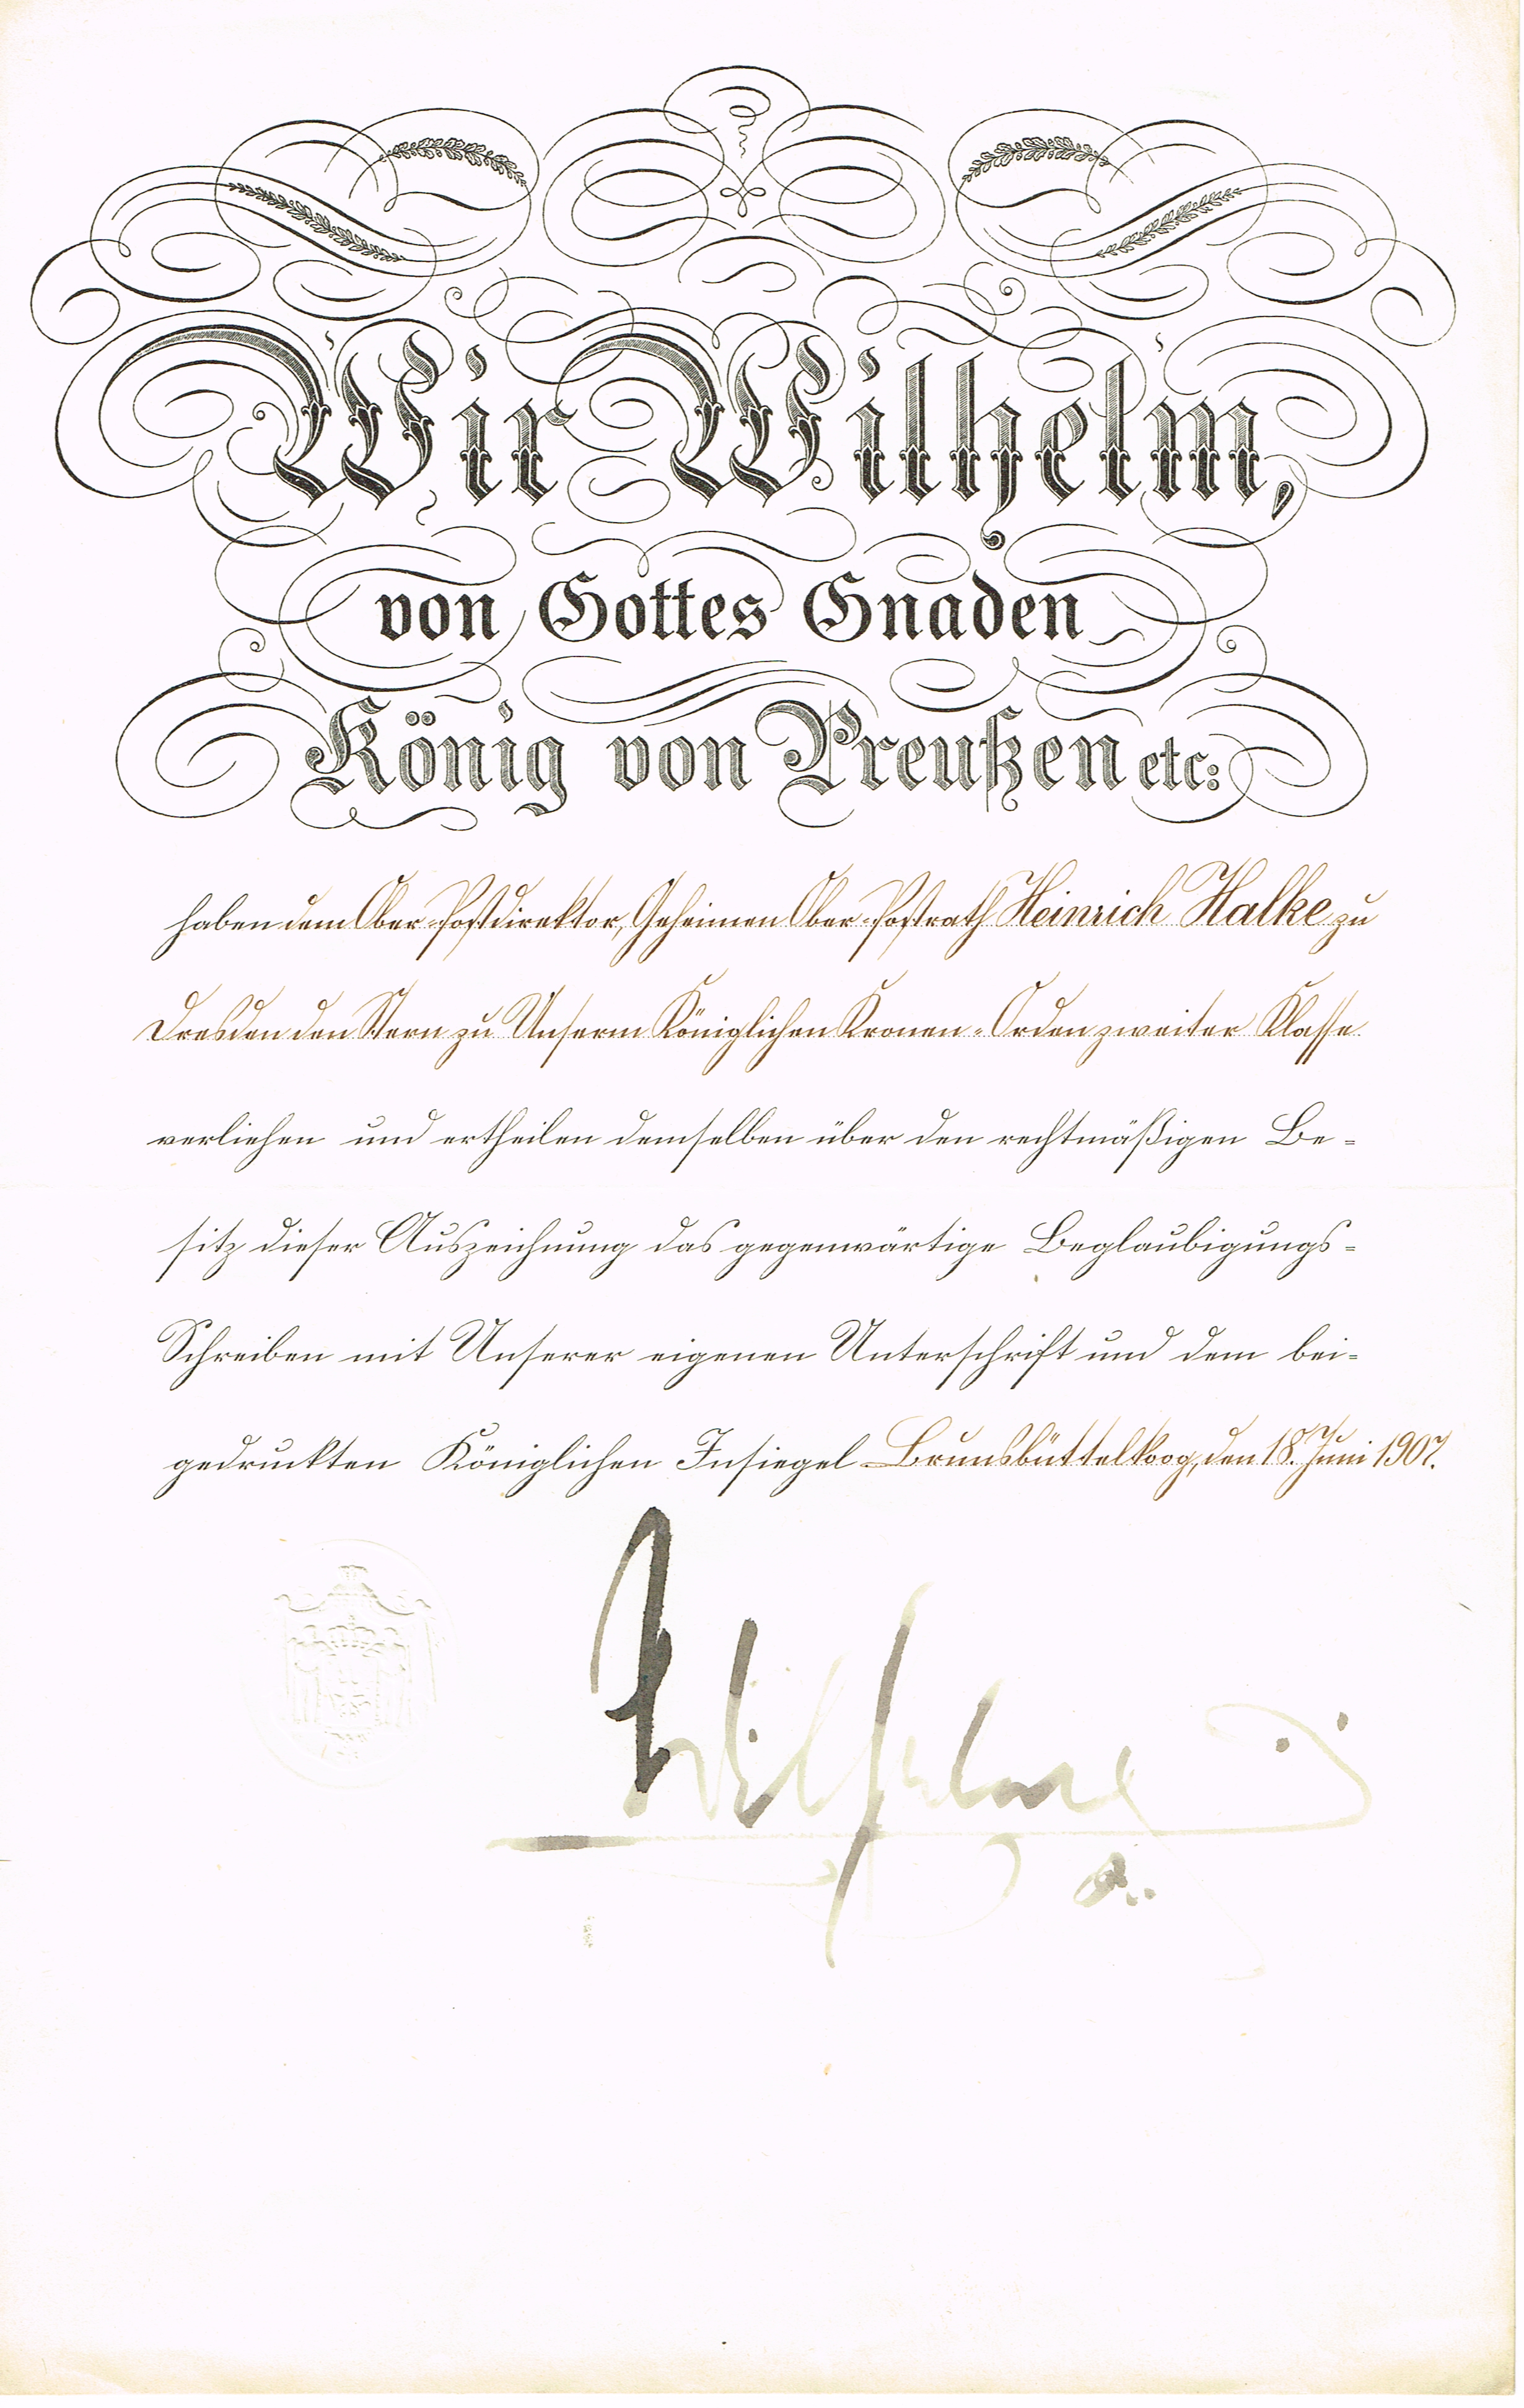 Wir Wilhelm,
von Gottes Gnaden
König von Preußen etc:
haben dem Ober-Postdirektor, Geheimen Ober-Postrath Heinrich Halke zu
Dresden den Stern zu Unserm Königlichen Kronen-Orden zweiter Klasse
verliehen und ertheilen demselben über den rechtmäßigen Be-
sitz dieser Auszeichnung das gegenwärtige Beglaubigungs-
Schreiben mit Unserer eigenen Unterschrift und dem bei-
gedruckten Königlichen Insiegel Brunsbüttelkoog, den 18. Juni 1907.
Wilhelm